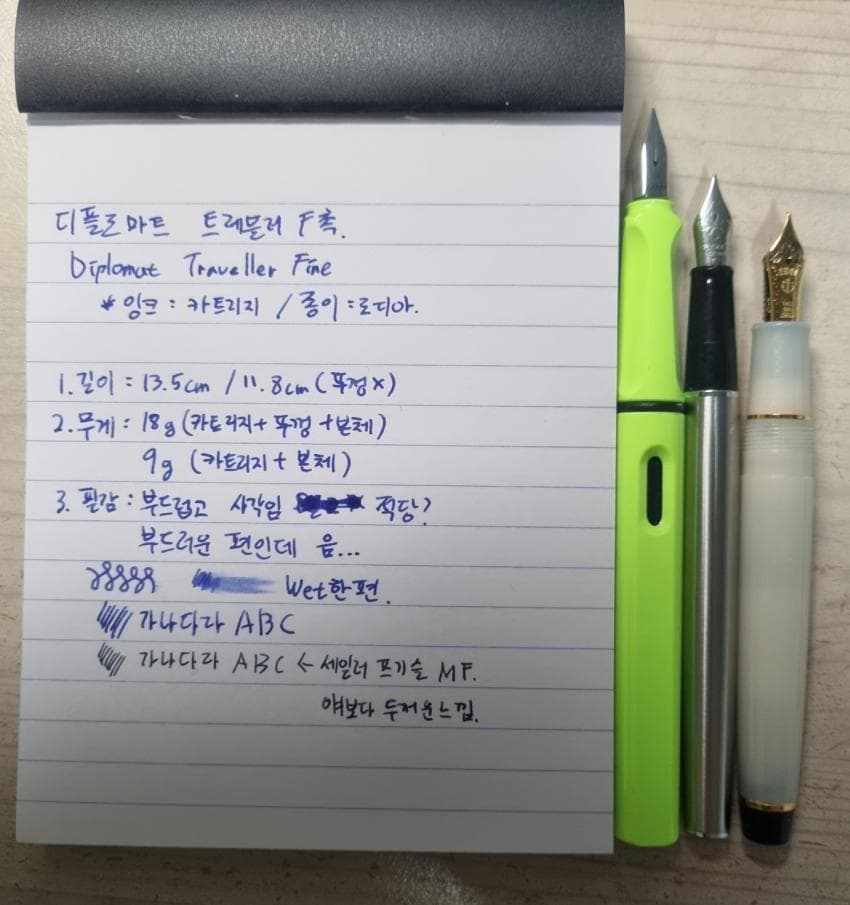 디플로마트 트레블러 F촉.
Diplomat Traveller Fine
* 잉크 : 카트리지 / 종이 : 로디아.
1. 길이 : 13.5cm / 11.8cm (뚜껑x)
2. 무게 : 18g (카트리지 + 뚜껑 + 본체)
9g (카트리지 + 본체)
3. 필감 : 부드럽고 사각임 적당?
부드러운 편인데 음...
Wet한편.
가나다라 ABC
가나다라 ABC ← 세일러 프기슬 MF.
얘보다 두꺼운느낌.